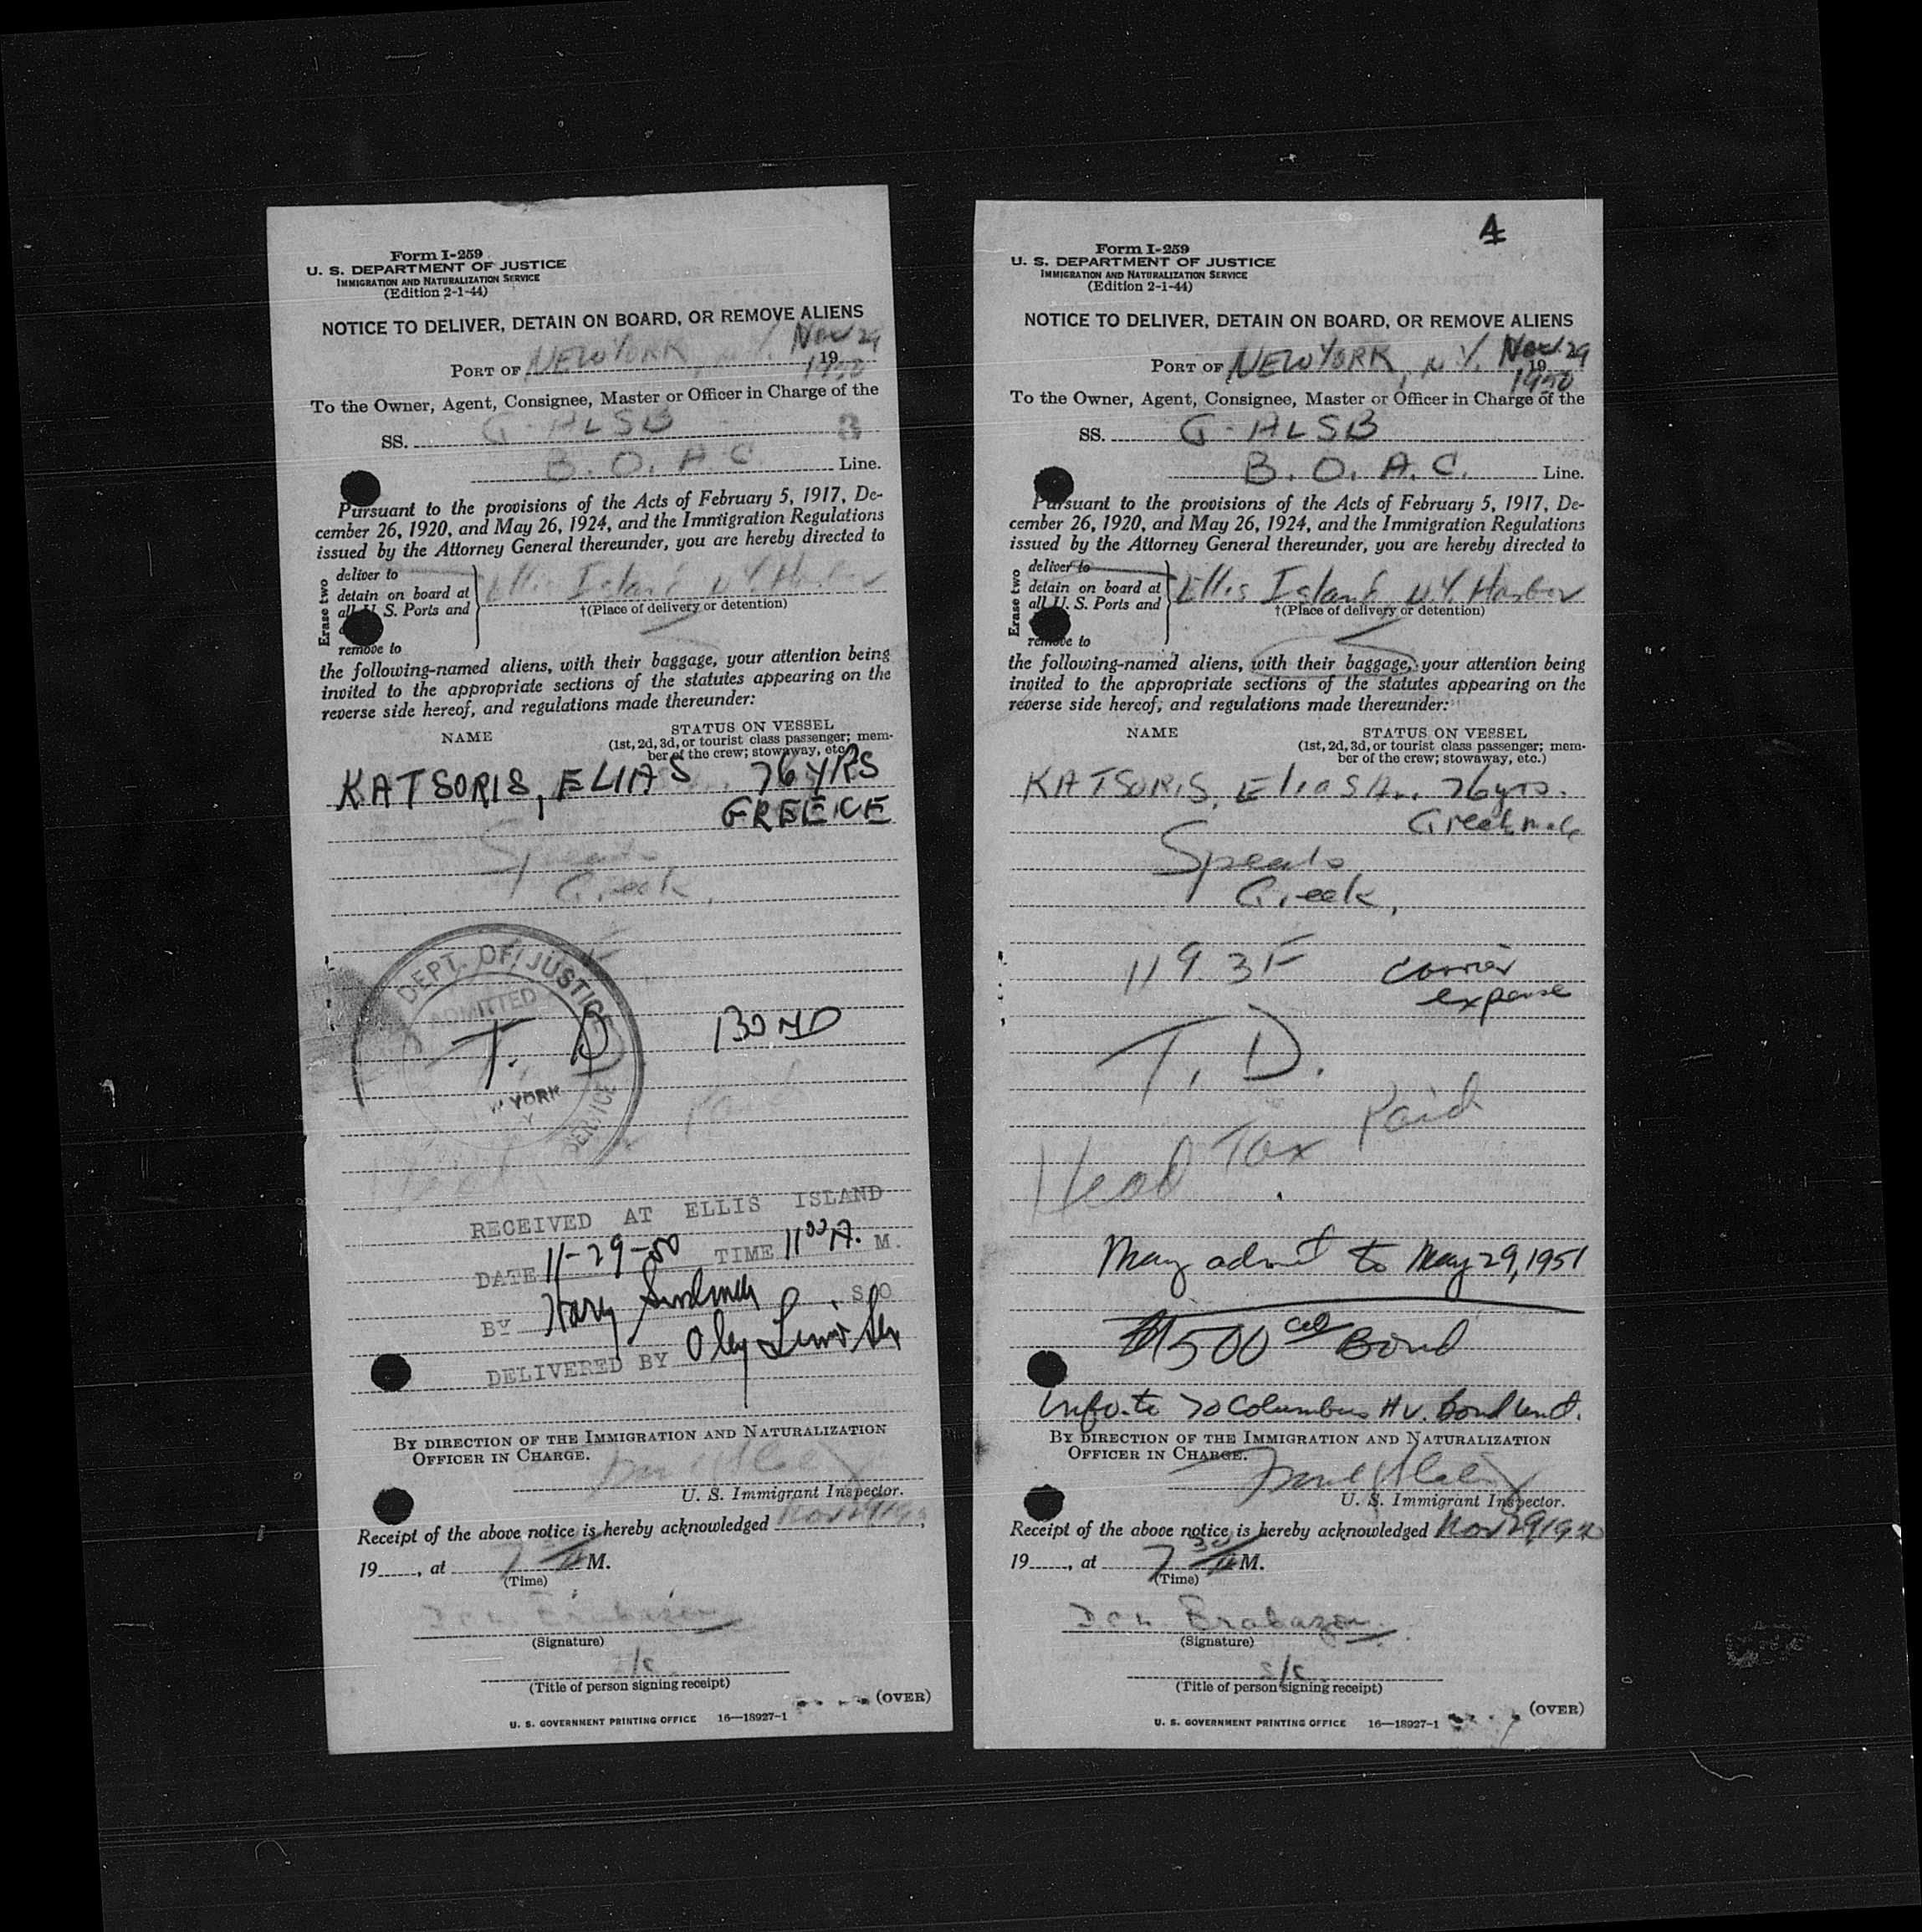 Form I-259
U. S. DEPARTMENT OF JUSTICE
IMMIGRATION AND NATURALIZATION SERVICE
(Edition 2-1-44)
NOTICE TO DELIVER, DETAIN ON BOARD, OR REMOVE ALIENS
PORT OF NEW YORK, N.Y. Nov 29
19
1950
To the Owner, Agent, Consignee, Master or Officer in Charge of the
SS. G-ALSB
B.O.A.C. Line.
Pursuant to the provisions of the Acts of February 5, 1917, De-
cember 26, 1920, and May 26, 1924, and the Immigration Regulations
issued by the Attorney General thereunder, you are hereby directed to
Erase two
deliver to
detain on board at
all U. S. Ports and
remove to
Ellis Island N.Y. Harbor
†(Place of delivery or detention)
the following-named aliens, with their baggage, your attention being
invited to the appropriate sections of the statutes appearing on the
reverse side hereof, and regulations made thereunder:
NAME
STATUS ON VESSEL
(1st, 2d, 3d, or tourist class passenger; mem-
ber of the crew; stowaway, etc.)
KATSORIS, ELIAS 76 YRS
GREECE
Speaks
Greek,
DEPT. OF JUSTICE
ADMITTED
T. D. BOND
YORK
SERVICE
Paid
RECEIVED AT ELLIS ISLAND
DATE 11-29-50 TIME 11 00 A. M.
BY Harry S O
DELIVERED BY
BY DIRECTION OF THE IMMIGRATION AND NATURALIZATION
OFFICER IN CHARGE.
U. S. Immigrant Inspector.
Receipt of the above notice is hereby acknowledged Nov 29 1950,
19____, at 7 30 A M.
(Time)
Brabazon
(Signature)
(Title of person signing receipt)
(OVER)
U. S. GOVERNMENT PRINTING OFFICE 16—18927-1
4
Form I-259
U. S. DEPARTMENT OF JUSTICE
IMMIGRATION AND NATURALIZATION SERVICE
(Edition 2-1-44)
NOTICE TO DELIVER, DETAIN ON BOARD, OR REMOVE ALIENS
PORT OF NEW YORK, N.Y. Nov. 29
19
1950
To the Owner, Agent, Consignee, Master or Officer in Charge of the
SS. G-ALSB
B.O.A.C. Line.
Pursuant to the provisions of the Acts of February 5, 1917, De-
cember 26, 1920, and May 26, 1924, and the Immigration Regulations
issued by the Attorney General thereunder, you are hereby directed to
Erase two
deliver to
detain on board at
all U. S. Ports and
remove to
Ellis Island N.Y. Harbor
†(Place of delivery or detention)
the following-named aliens, with their baggage, your attention being
invited to the appropriate sections of the statutes appearing on the
reverse side hereof, and regulations made thereunder:
NAME
STATUS ON VESSEL
(1st, 2d, 3d, or tourist class passenger; mem-
ber of the crew; stowaway, etc.)
KATSORIS, Elias A., 76 yrs.
Greek male
Speaks
Greek,
1193F carrier
expense
T. D.
Head Tax Paid
May admit to May 29, 1951
$500 Bond
to Columbus Av. Bond
BY DIRECTION OF THE IMMIGRATION AND NATURALIZATION
OFFICER IN CHARGE.
U. S. Immigrant Inspector.
Receipt of the above notice is hereby acknowledged Nov 29 1950
19____, at 7 30 A M.
(Time)
Brabazon
(Signature)
(Title of person signing receipt)
(OVER)
U. S. GOVERNMENT PRINTING OFFICE 16—18927-1